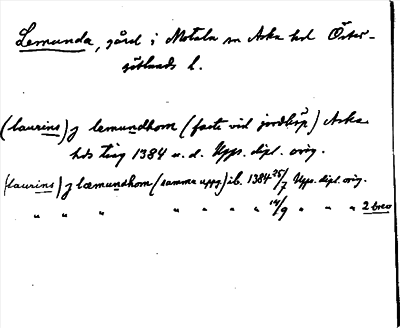 Lemunda, gård i Motala sn Aska hd Öster-
götlands l.
(laurins) j lemundhom (faste vid jordköp) Aska
hds ting 1384 u. d. Upps. dipl. orig.
(laurins) j læmundhom (samma uppg) ib. 1384 25/7 Upps. dipl. orig.
" " " " " " " " 14/9 " " " 2 brev